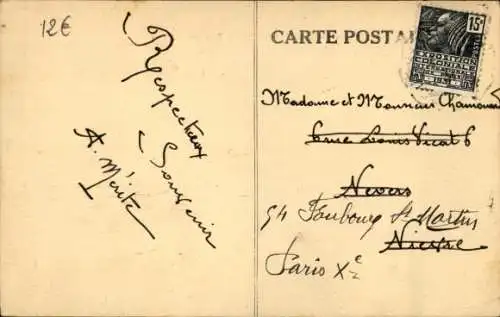 12€
Respectueux
Souvenir
A. Mérite
CARTE POSTALE
15c
EXPOSITION
COLONIALE
INTERNATIONALE
PARIS 1931
Madame et Monsieur Chamonard
6 rue Louis Vicat 6
Nevers
54 Faubourg St Martin
Nièvre
Paris Xe